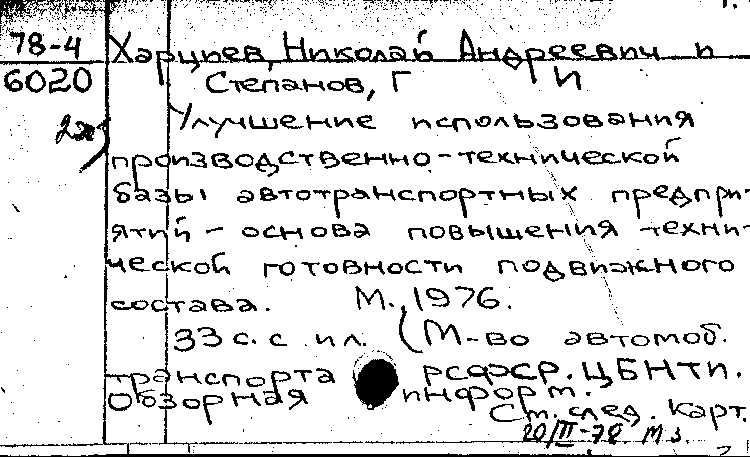 78-4
6020
2ж
Харциев, Николай Андреевич и
Степанов, Г И
Улучшение использования
производственно-технической
базы автотранспортных предпри-
ятий - основа повышения техни-
ческой готовности подвижного
состава. М., 1976.
33 с. с ил. (М-во автомоб.
транспорта РСФСР. ЦБНТИ.
Обзорная информ.
См. след. карт.
20/III-78